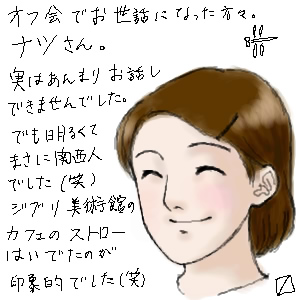 オフ会でお世話になった方々。
ナツさん。
実はあんまりお話し
できませんでした。
でも明るくて
まさに関西人
でした(笑)
ジブリ美術館の
カフェのストロー
はいでたのが
印象的でした(笑)